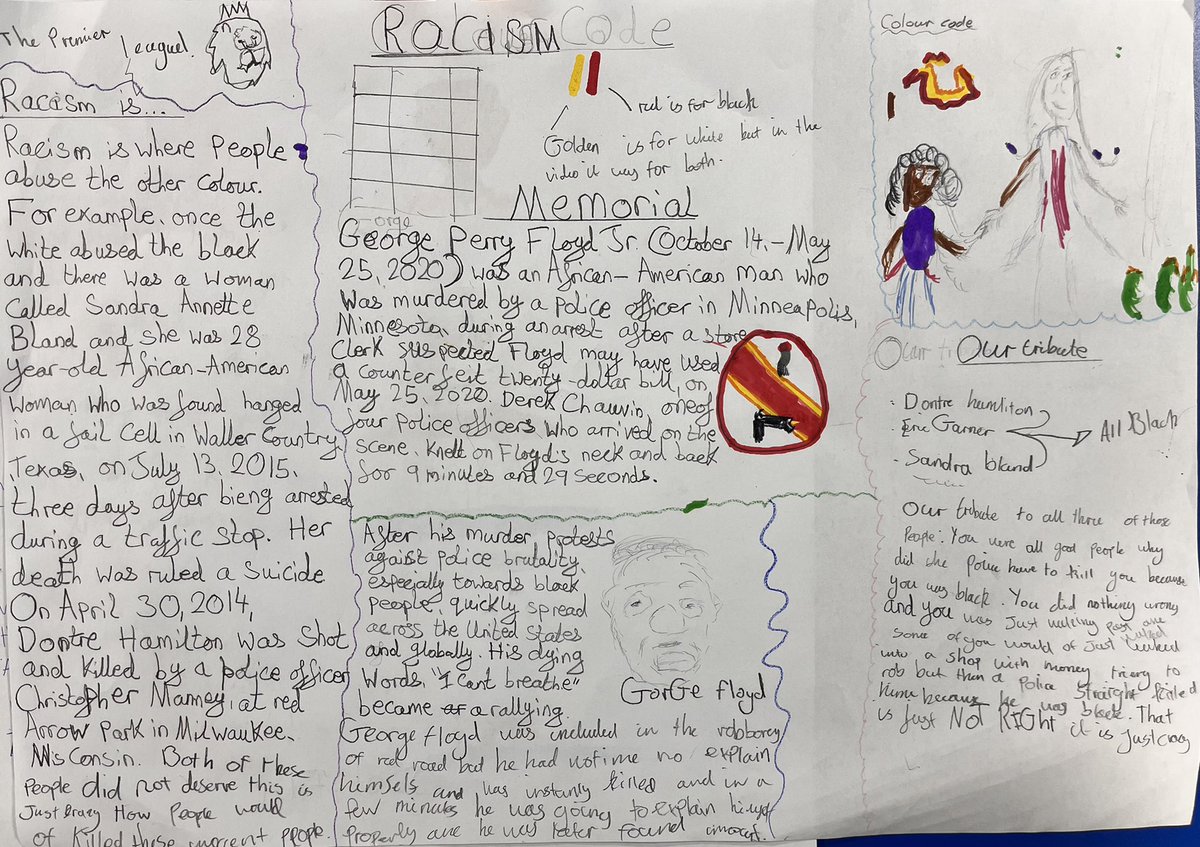 The Premier
League!
Racism is...
Racism is where People
abuse the other colour.
For example, once the
white abused the black
and there was a woman
Called Sandra Annette
Bland and she was 28
year-old African-American
woman who was found hanged
in a Jail Cell in Waller Country,
Texas, on July 13, 2015.
three days after bieng arrested
during a traffic stop. Her
death was ruled a Suicide
On April 30, 2014,
Dontre Hamilton was Shot
and killed by a police officer
Christopher Manney, at red
Arrow Park in Milwaukee.
Wisconsin. Both of these
people did not deserve this is
Just crazy How people would
of killed these innocent people.
Racism
Code
red is for black
Golden is for white but in the
video it was for both.
Memorial
George Perry Floyd Jr. (October 14.-May
25, 2020) was an African-American man who
was murdered by a police officer in Minneapolis,
Minnesota, during an arrest after a store
Clerk suspected Floyd may have used
a counterfeit twenty-dollar bill, on
May 25, 2020. Derek Chauvin, one of
four police officers who arrived on the
scene, knelt on Floyd's neck and back
for 9 minutes and 29 seconds.
After his murder, protests
against police brutality,
especjally towards black
people, quickly spread
across the United States
and globally. His dying
words, "I cant breathe"
became a rallying.
GorGe floyd
George floyd was included in the robborey
of red road but he had notime no explain
himsels and was instantly killed and in a
few minutes he was going to explain himself
properly and he was later found
Colour code
Our tribute
· Dontre humliton
· Eric Garner
· Sandra bland
All Black
Our tribute to all three of those
People: You were all good people why
did the police have to kill you because
you was black. You did nothing wrong
and you was Just walking past and
Some of you would of Just walked
into a shop with money trieng to
rob but then a police straight killed
him because he was black. That
is just NOT RIGHT it is Just crazy